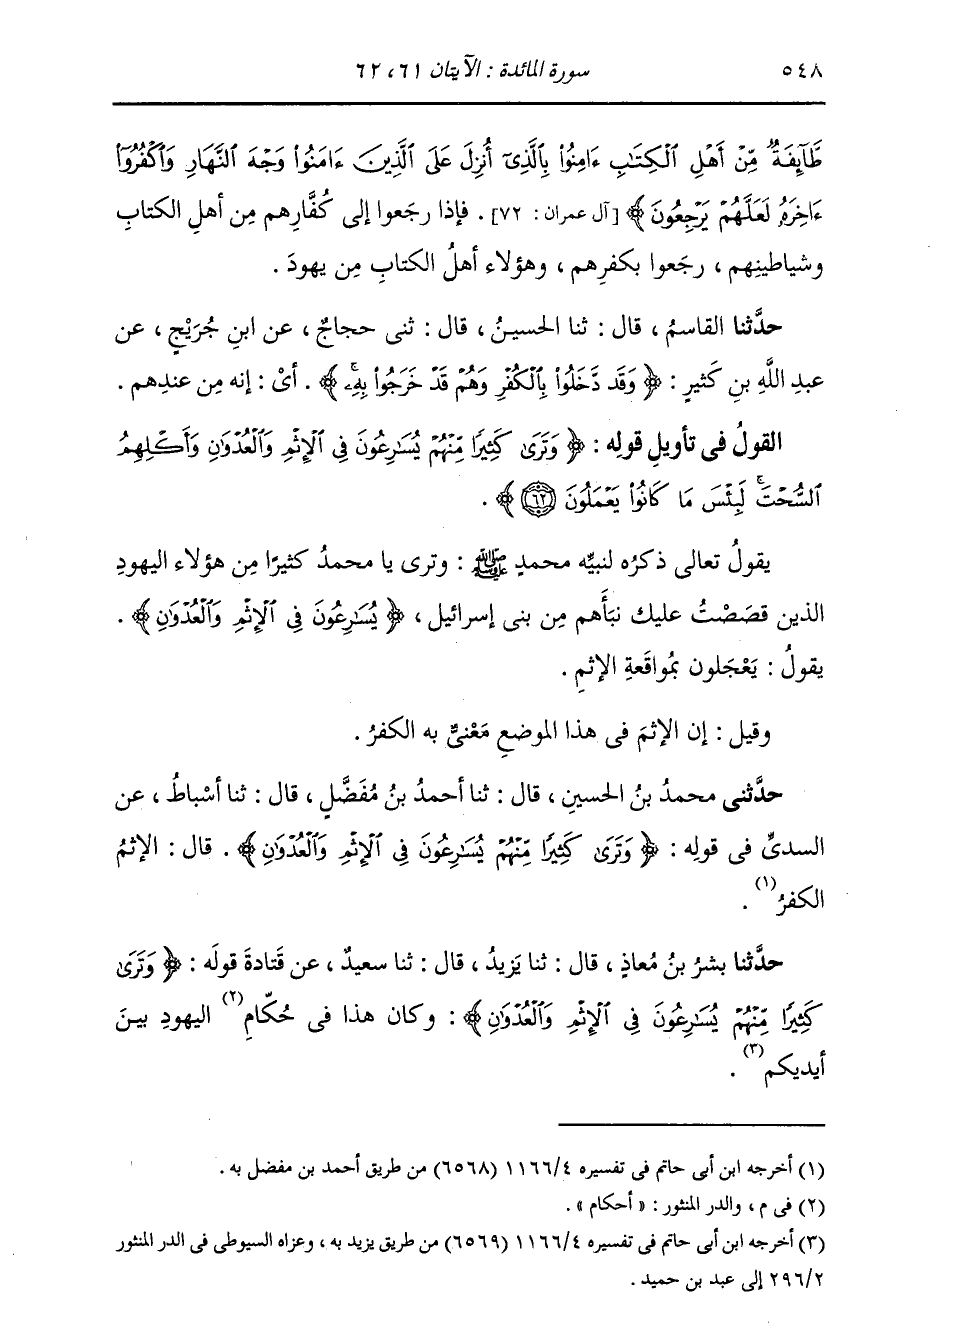 ٥٤٨ سورة المائدة : الآيتان ٦١، ٦٢
طَآئِفَةٌ مِّنْ أَهْلِ ٱلْكِتَٰبِ ءَامِنُوا۟ بِٱلَّذِىٓ أُنزِلَ عَلَى ٱلَّذِينَ ءَامَنُوا۟ وَجْهَ ٱلنَّهَارِ وَٱكْفُرُوٓا۟
ءَاخِرَهُۥ لَعَلَّهُمْ يَرْجِعُونَ ﴾ [آل عمران : ٧٢] . فإذا رجَعوا إلى كُفَّارِهم مِن أهلِ الكتابِ
وشياطينِهم ، رجَعوا بكفرِهم ، وهؤلاء أهلُ الكتابِ مِن يهودَ .
حدَّثنا القاسمُ ، قال : ثنا الحسينُ ، قال : ثنى حجاجٌ ، عن ابنِ جُرَيْجٍ ، عن
عبدِ اللَّهِ بنِ كَثيرٍ : ﴿ وَقَد دَّخَلُوا۟ بِٱلْكُفْرِ وَهُمْ قَدْ خَرَجُوا۟ بِهِۦۚ ﴾ . أىْ : إنه مِن عندِهم .
القولُ فى تأويلِ قولِه : ﴿ وَتَرَىٰ كَثِيرًا مِّنْهُمْ يُسَٰرِعُونَ فِى ٱلْإِثْمِ وَٱلْعُدْوَٰنِ وَأَكْلِهِمُ
ٱلسُّحْتَۚ لَبِئْسَ مَا كَانُوا۟ يَعْمَلُونَ ٦٢ ﴾ .
يقولُ تعالى ذكرُه لنبيِّه محمدٍ ﷺ : وترى يا محمدُ كثيرًا مِن هؤلاء اليهودِ
الذين قصَصْتُ عليك نبَأَهم مِن بنى إسرائيل ، ﴿ يُسَٰرِعُونَ فِى ٱلْإِثْمِ وَٱلْعُدْوَٰنِ ﴾ .
يقولُ : يَعْجَلون بمُواقَعةِ الإثمِ .
وقيل : إن الإثمَ فى هذا الموضعِ مَعْنىٌّ به الكفرُ .
حدَّثنى محمدُ بنُ الحسينِ ، قال : ثنا أحمدُ بنُ مُفَضَّلٍ ، قال : ثنا أسْباطُ ، عن
السدىِّ فى قولِه : ﴿ وَتَرَىٰ كَثِيرًا مِّنْهُمْ يُسَٰرِعُونَ فِى ٱلْإِثْمِ وَٱلْعُدْوَٰنِ ﴾ . قال : الإثمُ
الكفرُ (١) .
حدَّثنا بشرُ بنُ مُعاذٍ ، قال : ثنا يَزيدُ ، قال : ثنا سعيدٌ ، عن قَتادةَ قولَه : ﴿ وَتَرَىٰ
كَثِيرًا مِّنْهُمْ يُسَٰرِعُونَ فِى ٱلْإِثْمِ وَٱلْعُدْوَٰنِ ﴾ : وكان هذا فى حُكَّامِ (٢) اليهودِ بينَ
أيديكم (٣) .
(١) أخرجه ابن أبى حاتم فى تفسيره ١١٦٦/٤ (٦٥٦٨) من طريق أحمد بن مفضل به .
(٢) فى م ، والدر المنثور : « أحكام » .
(٣) أخرجه ابن أبى حاتم فى تفسيره ١١٦٦/٤ (٦٥٦٩) من طريق يزيد به ، وعزاه السيوطى فى الدر المنثور
٢٩٦/٢ إلى عبد بن حميد .